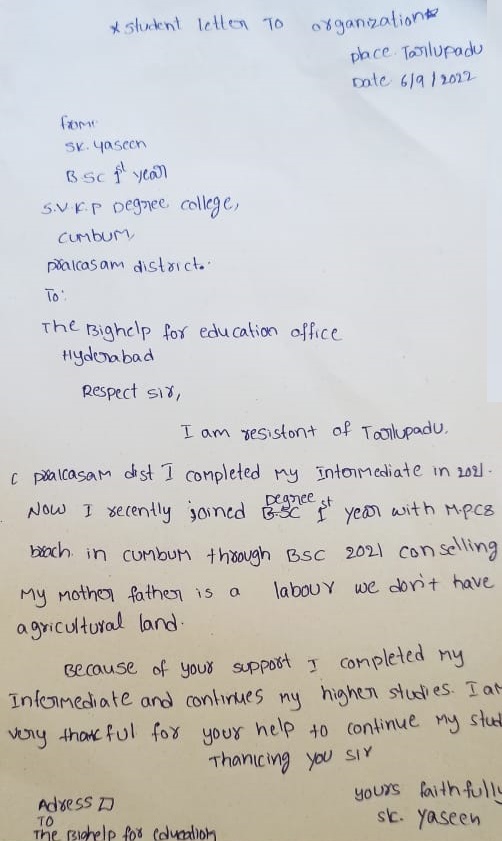 * student letter To organization*
place. Tarlupadu
Date 6/9/2022
from:
SK. yaseen
B sc 1st year
S.V.K.P Degree college,
cumbum,
prakasam district.
To:
The Bighelp for education office
Hyderabad
Respect sir,
I am resistont of Tarlupadu.
( prakasam dist I completed my Intermediate in 2021.
Now I recently joined Degree B.SC 1st year with M.P.CS
brach in cumbum through BSC 2021 conselling
My Mother father is a labour we don't have
agricultural land.
Because of your support I completed my
Intermediate and continues my higher studies. I am
very thankful for your help to continue my stud
Thanking you sir
yours faithfully
sk. yaseen
Adress
TO
The Bighelp for education